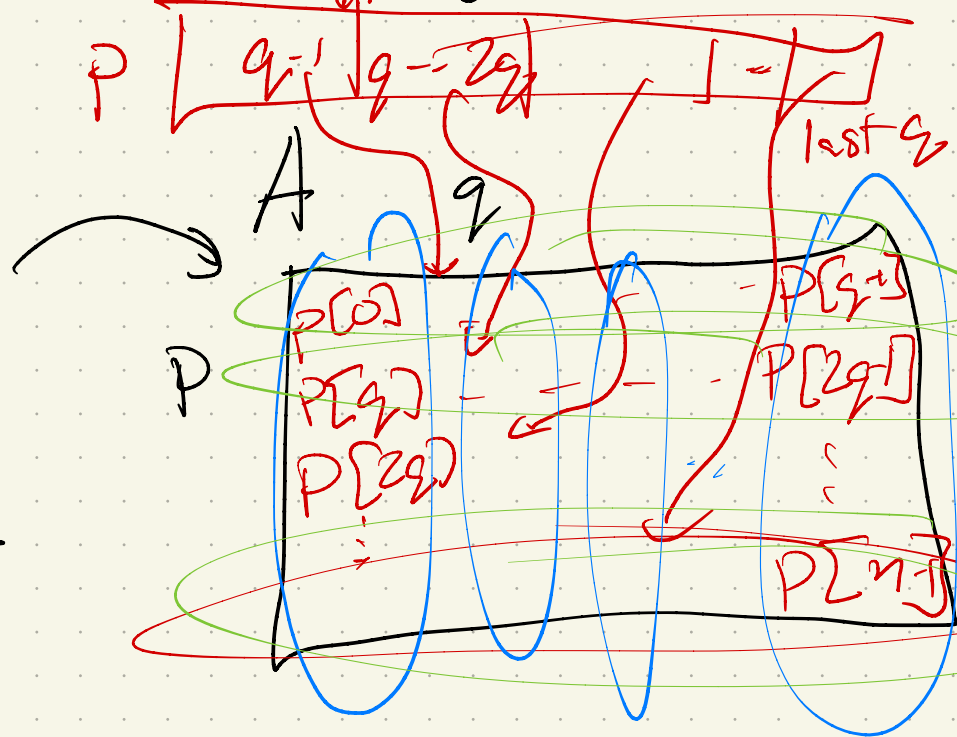 P [ q-1 | q -- 2q ] ] -- 
last q
A q
P[0] - P[q-1]
P
P[q] - - - - P[2q-1]
P[2q]
P[n-1]